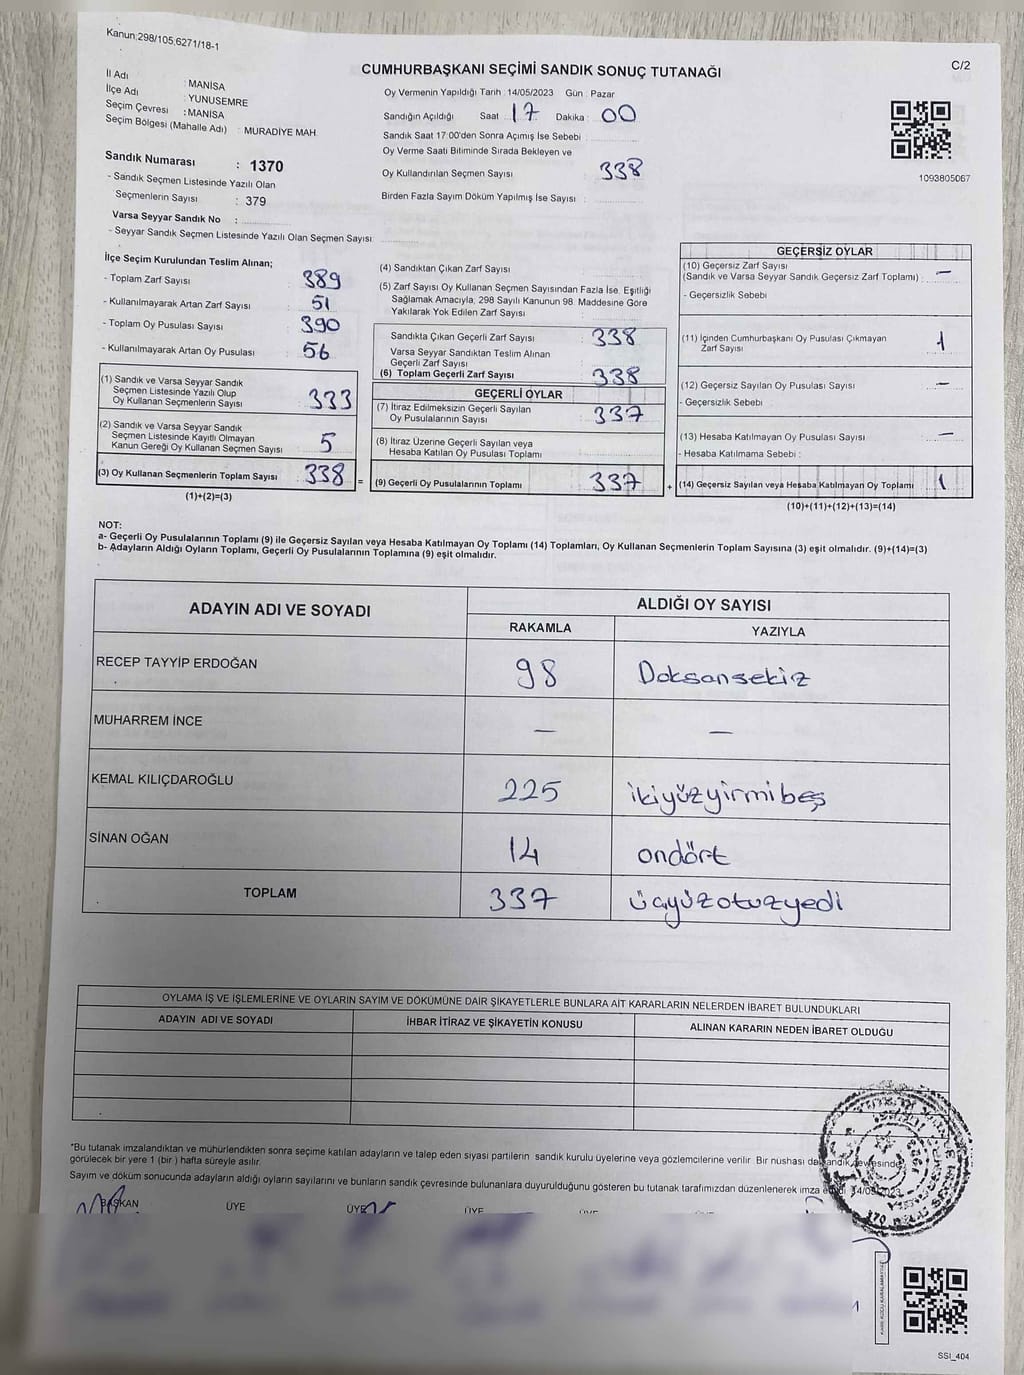 Kanun:298/105,6271/18-1
C/2
CUMHURBAŞKANI SEÇİMİ SANDIK SONUÇ TUTANAĞI
İl Adı : MANİSA
İlçe Adı : YUNUSEMRE
Seçim Çevresi : MANİSA
Seçim Bölgesi (Mahalle Adı) : MURADİYE MAH.
Oy Vermenin Yapıldığı Tarih : 14/05/2023 Gün : Pazar
Sandığın Açıldığı Saat : 17 Dakika : 00
Sandık Saat 17:00'den Sonra Açımış İse Sebebi :
Oy Verme Saati Bitiminde Sırada Bekleyen ve
Oy Kullandırılan Seçmen Sayısı : 338
Birden Fazla Sayım Döküm Yapılmış İse Sayısı :
1093805067
Sandık Numarası : 1370
- Sandık Seçmen Listesinde Yazılı Olan
Seçmenlerin Sayısı : 379
Varsa Seyyar Sandık No :
- Seyyar Sandık Seçmen Listesinde Yazılı Olan Seçmen Sayısı:
İlçe Seçim Kurulundan Teslim Alınan;
- Toplam Zarf Sayısı : 389
- Kullanılmayarak Artan Zarf Sayısı : 51
- Toplam Oy Pusulası Sayısı : 390
- Kullanılmayarak Artan Oy Pusulası : 56
(1) Sandık ve Varsa Seyyar Sandık
Seçmen Listesinde Yazılı Olup
Oy Kullanan Seçmenlerin Sayısı : 333
(2) Sandık ve Varsa Seyyar Sandık
Seçmen Listesinde Kayıtlı Olmayan
Kanun Gereği Oy Kullanan Seçmen Sayısı : 5
(3) Oy Kullanan Seçmenlerin Toplam Sayısı : 338
(1)+(2)=(3)
(4) Sandıktan Çıkan Zarf Sayısı
(5) Zarf Sayısı Oy Kullanan Seçmen Sayısından Fazla İse, Eşitliği
Sağlamak Amacıyla, 298 Sayılı Kanunun 98. Maddesine Göre
Yakılarak Yok Edilen Zarf Sayısı :
Sandıkta Çıkan Geçerli Zarf Sayısı : 338
Varsa Seyyar Sandıktan Teslim Alınan
Geçerli Zarf Sayısı
(6) Toplam Geçerli Zarf Sayısı : 338
GEÇERLİ OYLAR
(7) İtiraz Edilmeksizin Geçerli Sayılan
Oy Pusulalarının Sayısı : 337
(8) İtiraz Üzerine Geçerli Sayılan veya
Hesaba Katılan Oy Pusulası Toplamı :
= (9) Geçerli Oy Pusulalarının Toplamı : 337
GEÇERSİZ OYLAR
(10) Geçersiz Zarf Sayısı
(Sandık ve Varsa Seyyar Sandık Geçersiz Zarf Toplamı) : —
- Geçersizlik Sebebi
(11) İçinden Cumhurbaşkanı Oy Pusulası Çıkmayan
Zarf Sayısı : 1
(12) Geçersiz Sayılan Oy Pusulası Sayısı : —
- Geçersizlik Sebebi
(13) Hesaba Katılmayan Oy Pusulası Sayısı : —
- Hesaba Katılmama Sebebi :
+ (14) Geçersiz Sayılan veya Hesaba Katılmayan Oy Toplamı : 1
(10)+(11)+(12)+(13)=(14)
NOT:
a- Geçerli Oy Pusulalarının Toplamı (9) ile Geçersiz Sayılan veya Hesaba Katılmayan Oy Toplamı (14) Toplamları, Oy Kullanan Seçmenlerin Toplam Sayısına (3) eşit olmalıdır. (9)+(14)=(3)
b- Adayların Aldığı Oyların Toplamı, Geçerli Oy Pusulalarının Toplamına (9) eşit olmalıdır.
ADAYIN ADI VE SOYADI ALDIĞI OY SAYISI
RAKAMLA YAZIYLA
RECEP TAYYİP ERDOĞAN 98 Doksansekiz
MUHARREM İNCE — —
KEMAL KILIÇDAROĞLU 225 ikiyüzyirmibeş
SİNAN OĞAN 14 ondört
TOPLAM 337 üçyüzotuzyedi
OYLAMA İŞ VE İŞLEMLERİNE VE OYLARIN SAYIM VE DÖKÜMÜNE DAİR ŞİKAYETLERLE BUNLARA AİT KARARLARIN NELERDEN İBARET BULUNDUKLARI
ADAYIN ADI VE SOYADI İHBAR İTİRAZ VE ŞİKAYETİN KONUSU ALINAN KARARIN NEDEN İBARET OLDUĞU
*Bu tutanak imzalandıktan ve mühürlendikten sonra seçime katılan adayların ve talep eden siyasi partilerin sandık kurulu üyelerine veya gözlemcilerine verilir. Bir nüshası da sandık çevresinde
görülecek bir yere 1 (bir) hafta süreyle asılır.
Sayım ve döküm sonucunda adayların aldığı oyların sayılarını ve bunların sandık çevresinde bulunanlara duyurulduğunu gösteren bu tutanak tarafımızdan düzenlenerek imza edildi 14/05/2023
BAŞKAN ÜYE ÜYE ÜYE
SSI_404